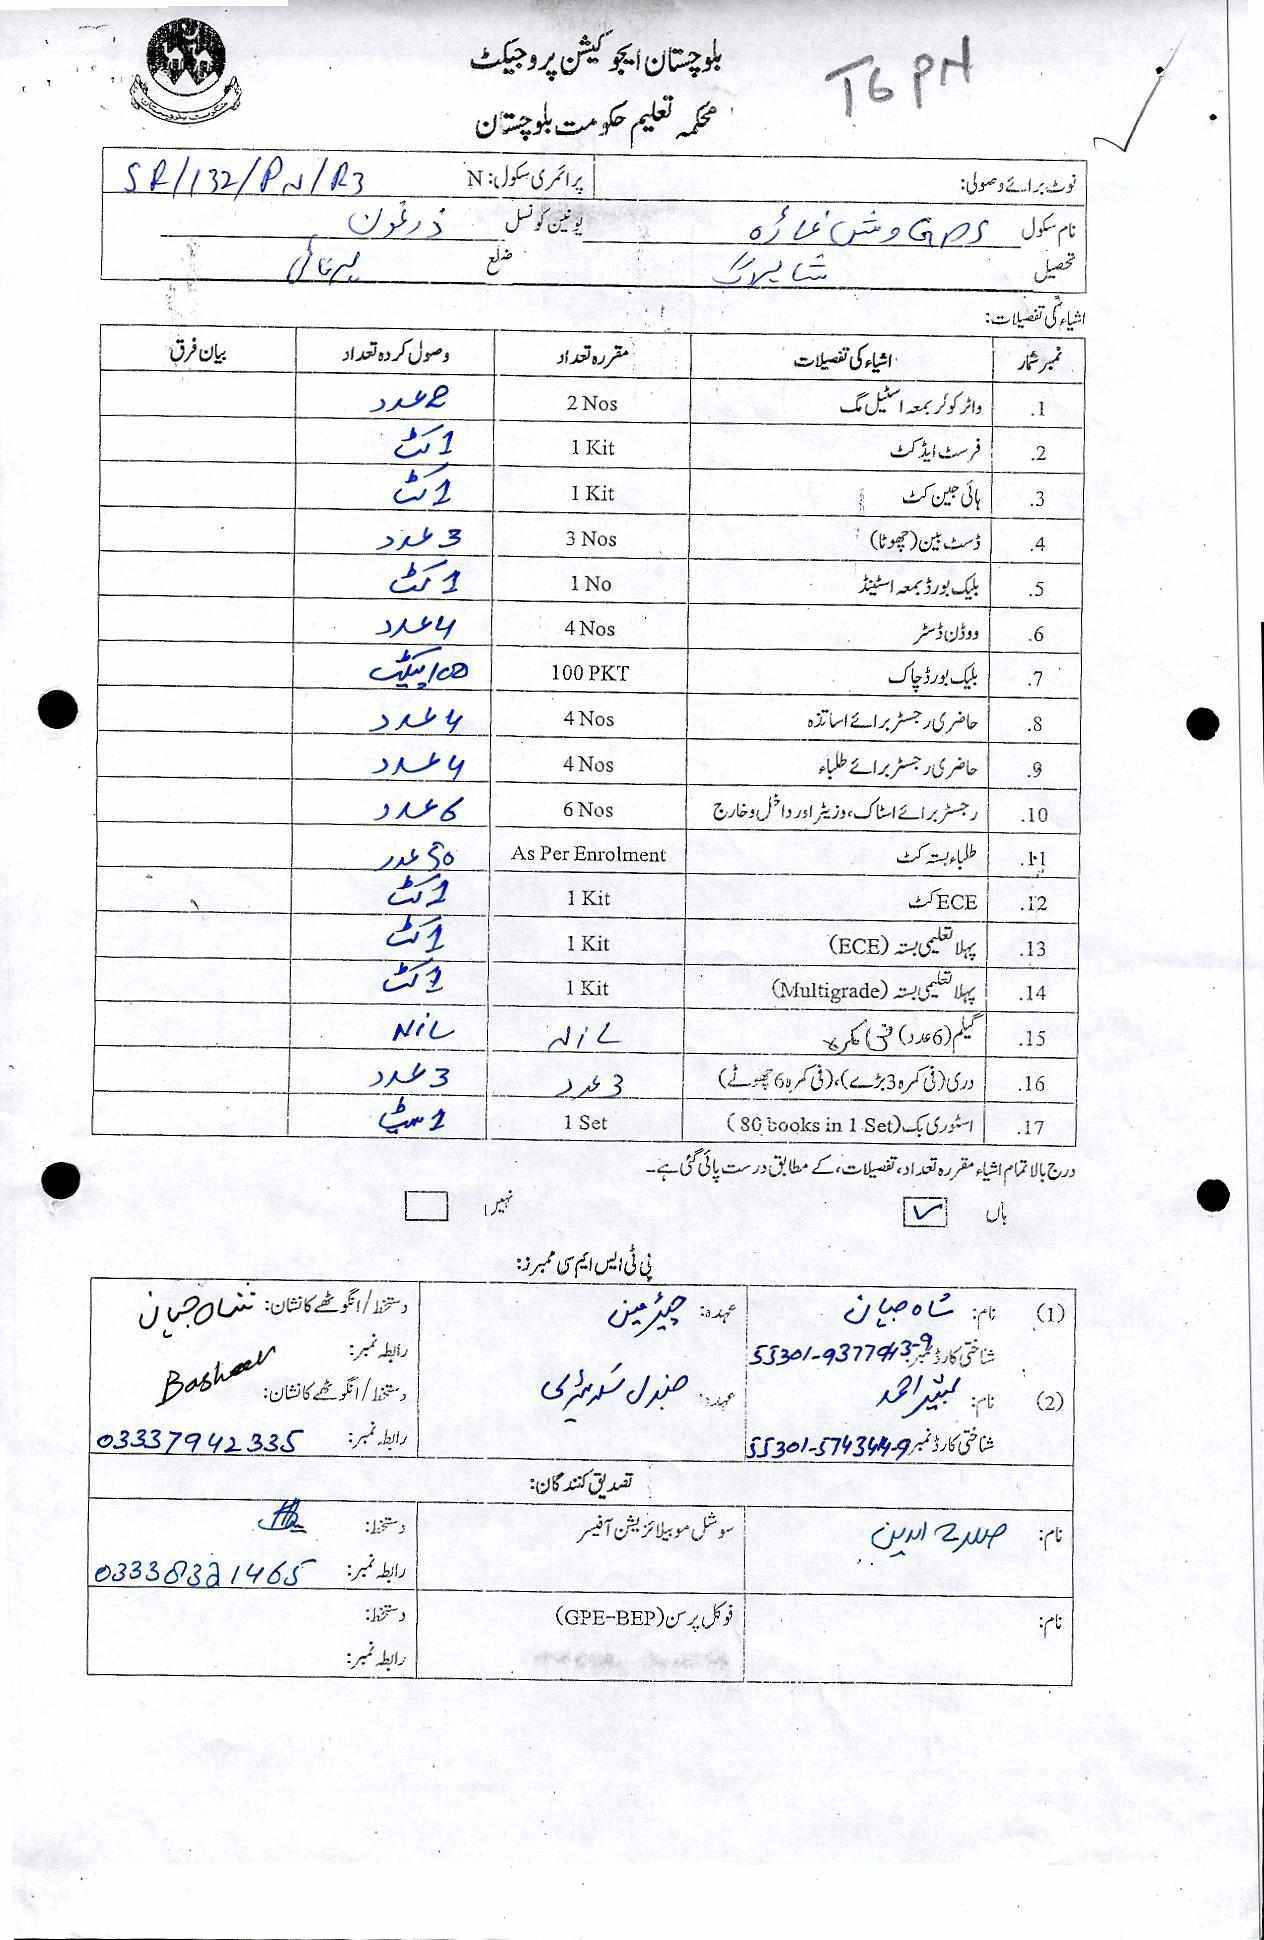 بلوچستان ایجوکیشن پروجیکٹ
T6 PN
محکمہ تعلیم حکومت بلوچستان
نوٹ برائے وصولی: پرائمری سکول: N SR/132/PN/R3
نام سکول GPS وش غاڑہ یونین کونسل زرغون
تحصیل شاہرگ ضلع ہرنائی
اشیاء کی تفصیلات:
نمبر شمار اشیاء کی تفصیلات مقررہ تعداد وصول کردہ تعداد بیان فرق
1. واٹر کولر بمعہ اسٹیل مگ 2 Nos 2 عدد
2. فرسٹ ایڈ کٹ 1 Kit 1 کٹ
3. ہائی جین کٹ 1 Kit 1 کٹ
4. ڈسٹ بین (چھوٹا) 3 Nos 3 عدد
5. بلیک بورڈ بمعہ اسٹینڈ 1 No 1 کٹ
6. ووڈن ڈسٹر 4 Nos 4 عدد
7. بلیک بورڈ چاک 100 PKT 100 پیکٹ
8. حاضری رجسٹر برائے اساتذہ 4 Nos 4 عدد
9. حاضری رجسٹر برائے طلباء 4 Nos 4 عدد
10. رجسٹر برائے اسٹاک، وزیٹر اور داخل و خارج 6 Nos 6 عدد
11. طلباء بستہ کٹ As Per Enrolment 50 عدد
12. ECE کٹ 1 Kit 1 کٹ
13. پہلا تعلیمی بستہ (ECE) 1 Kit 1 کٹ
14. پہلا تعلیمی بستہ (Multigrade) 1 Kit 1 کٹ
15. گیلم (6 عدد) فی کمرہ NiL NiL
16. دری (فی کمرہ 3 بڑے)، (فی کمرہ 6 چھوٹے) 3 عدد 3 عدد
17. اسٹوری بک (80 books in 1 Set) 1 Set 1 سیٹ
درج بالا تمام اشیاء مقررہ تعداد، تفصیلات، کے مطابق درست پائی گئی ہے۔
ہاں ✓ نہیں
پی ٹی ایس ایم سی ممبرز:
(1) نام: شاہ جہان عہدہ: چیئرمین دستخط/انگوٹھے کا نشان: شاہ جہان
شناختی کارڈ نمبر 55301-9377943-9 رابطہ نمبر:
(2) نام: بشیر احمد عہدہ: جنرل سیکرٹری دستخط/انگوٹھے کا نشان: Basheer
شناختی کارڈ نمبر 55301-5743414-9 رابطہ نمبر: 03337942335
تصدیق کنندگان:
نام: صلاح الدین سوشل موبیلائزیشن آفیسر دستخط:
رابطہ نمبر: 03338321465
نام: فوکل پرسن (GPE-BEP) دستخط:
رابطہ نمبر: